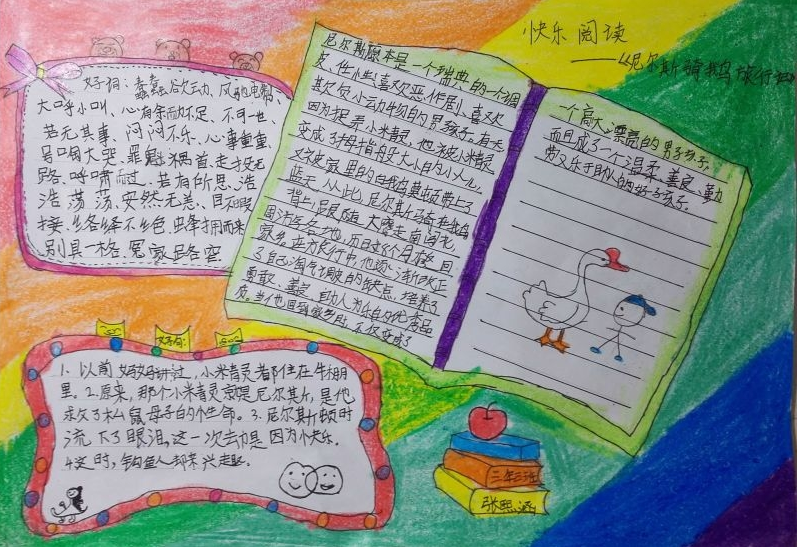 快乐阅读
——《尼尔斯骑鹅旅行记》
好词：蠢蠢欲动、风驰电掣、
大呼小叫、心有余而力不足、不可一世、
若无其事、闷闷不乐、心事重重、
号啕大哭、罪魁祸首、走投无
路、呼啸而过、若有所思、浩
浩荡荡、安然无恙、目不暇
接、络绎不绝、蜂拥而来
别具一格、冤家路窄
尼尔斯原本是一个瑞典的一个调
皮、性
喜欢恶作剧、喜欢
其欠小动物的男孩子。有天
因为捉弄小米青灵，他被小米青灵
变成了拇指般大小的小人儿，
家里的白鹅
带上了
蓝天，从此，尼尔斯骑在鹅
背上，跟随大雁走南闯北，
周游各地，历时8个月才
回
家乡。在旅行中，他逐渐改正
了自己淘气
的缺点，培养了
勇敢、善良、助人为乐的优秀品
质。当他回到家乡时，不仅变成了
一个高大漂亮的男孩子，
而且成了一个温柔、善良、勤
劳又乐于助人的好孩子。
好句：
1. 以前妈妈讲过，小米青灵都住在牛棚
里。2.原来，那个小米青灵就是尼尔斯，是他
救了松鼠母子的性命。3.尼尔斯顿时
流下了眼泪，这一次
是因为快乐。
4.这时，钓鱼人却来兴趣。
三年三班
张熙涵